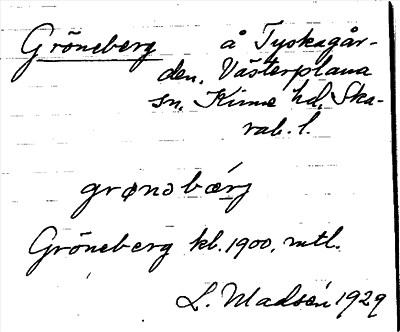 Gröneberg å Tyskagår-
den, Västerplana
sn, Kinne hd, Ska-
rab. l.
grønəbærj
Gröneberg kb. 1900, mtl.
L. Madsén 1929